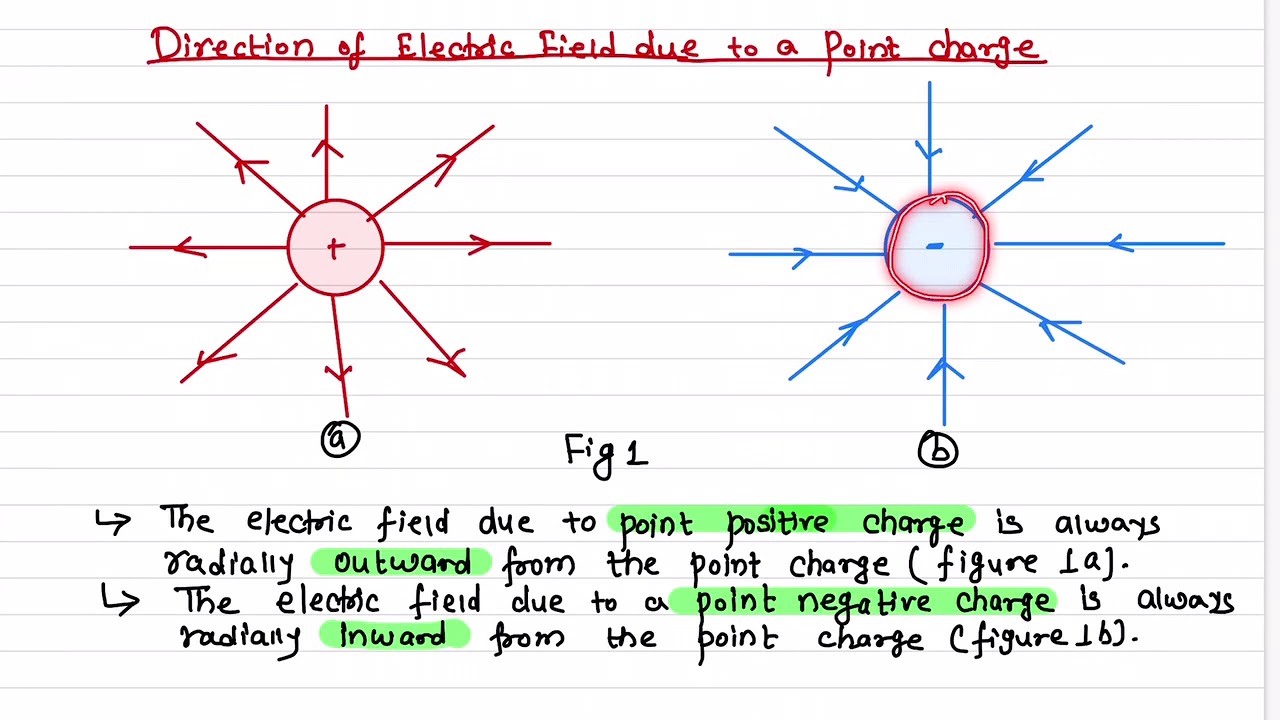 Direction of Electric Field due to a Point charge
+
-
a
Fig 1
b
↳ The electric field due to point positive charge is always
radially outward from the point charge (figure 1a).
↳ The electric field due to a point negative charge is always
radially inward from the point charge (figure 1b).